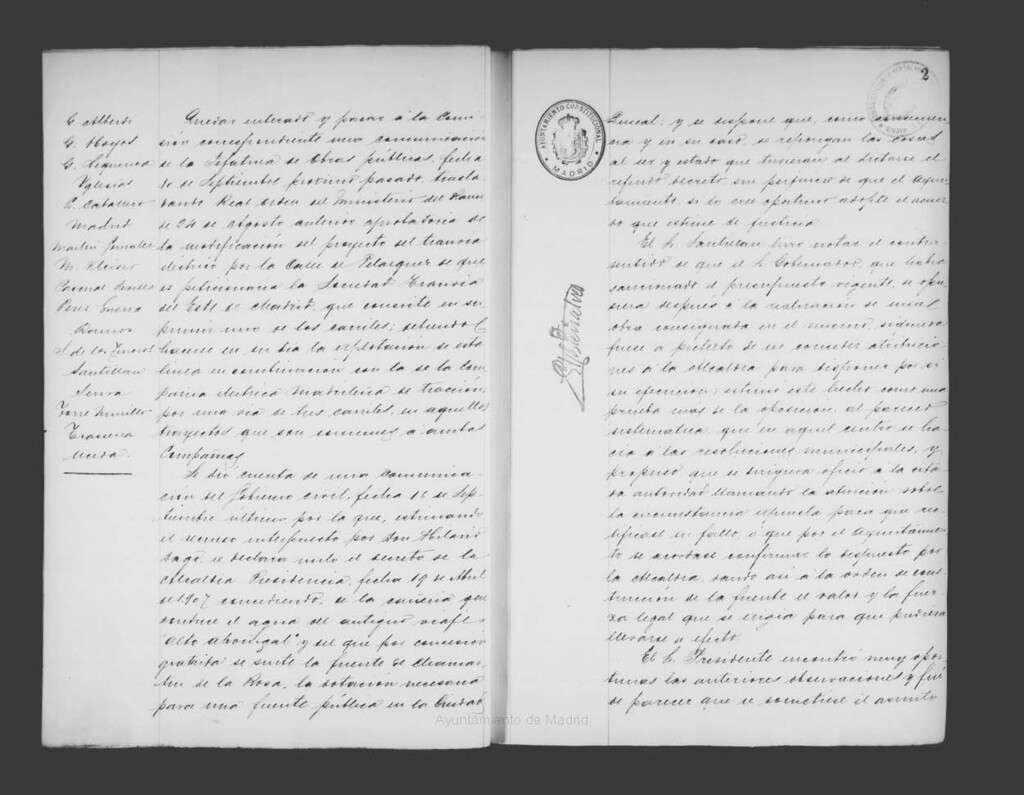 G. Alberdi
G. Hoyos
G. Sigüenza
Yglesias
L. Caballero
Madrid
Martín González
M. Kleiser
Coronel Sevilla
Pérez Guerra
Ramos
S. de los Terreros
Santillan
Serra
Torre Murillo
Traserra
Uceda.
Quedar enterado y pasar á la Comi-
sión correspondiente una comunicación
de la Jefatura de Obras públicas, fecha
10 de Septiembre próximo pasado, trasla-
dando Real orden del Ministerio del Ramo
de 24 de Agosto anterior aprobatoria de
la modificación del proyecto del tranvía
eléctrico por la Calle de Velázquez de que
es peticionaria la Sociedad Tranvia
del Este de Madrid, que consiste en su-
primir uno de los carriles; debiendo
hacerse en su día la explotación de esta
línea en combinación con la de la Com-
pañia electrica Madrileña de tracción,
por una vía de tres carriles, en aquellos
trayectos que son comunes á ambas
Compañias.
Se dió cuenta de una comunica-
ción del Gobierno civil, fecha 16 de Sep-
tiembre último por la que, estimando
el recurso interpuesto por Don Hilario
Dago, se declara nulo el decreto de la
Alcaldia Presidencia, fecha 19 de Abril
de 1907 concediendo, de la cañeria que
conduce el agua del antiguo viaje
"Alto Abroñigal" y del que por concesion
gratuita se surte la fuente de Chamar-
tin de la Rosa, la dotación necesaria
para una fuente pública en la Ciudad
2
AYUNTAMIENTO CONSTITUCIONAL
MADRID
Lineal; y se dispone que, como consecuen-
cia y en su caso, se repongan las cosas
al ser y estado que tuvieran al dictarse el
referido decreto sin perjuicio de que el Ayun-
tamiento, si lo cree oportuno adopte el acuer-
do que estime de justicia.
El Sr. Santillan hizo notar el contra-
sentido de que el Sr. Gobernador, que había
sancionado el presupuesto vigente, se opu-
siera después á la realización de una
obra consignada en el mismo, siquiera
fuese á pretexto de no conceder atribucio-
nes á la Alcaldía para disponer por sí
su ejecución; estimó este hecho como una
prueba más de la oposición, al parecer
sistemática, que en aquel centro se ha-
cía á las resoluciones municipales, y
propuso que se dirigiera oficio á la cita-
da autoridad llamando la atención sobre
la circunstancia expuesta para que rec-
tificase su fallo, ó que por el Ayuntamien-
to se acordase confirmar lo dispuesto por
la Alcaldía, dando así á la orden de cons-
trucción de la fuente el valor y la fuer-
za legal que se exigía para que pudiera
llevarse á efecto.
El Sr. Presidente encontró muy opor-
tunas las anteriores observaciones y fué
de parecer que se sometiese el asunto
Ayuntamiento de Madrid